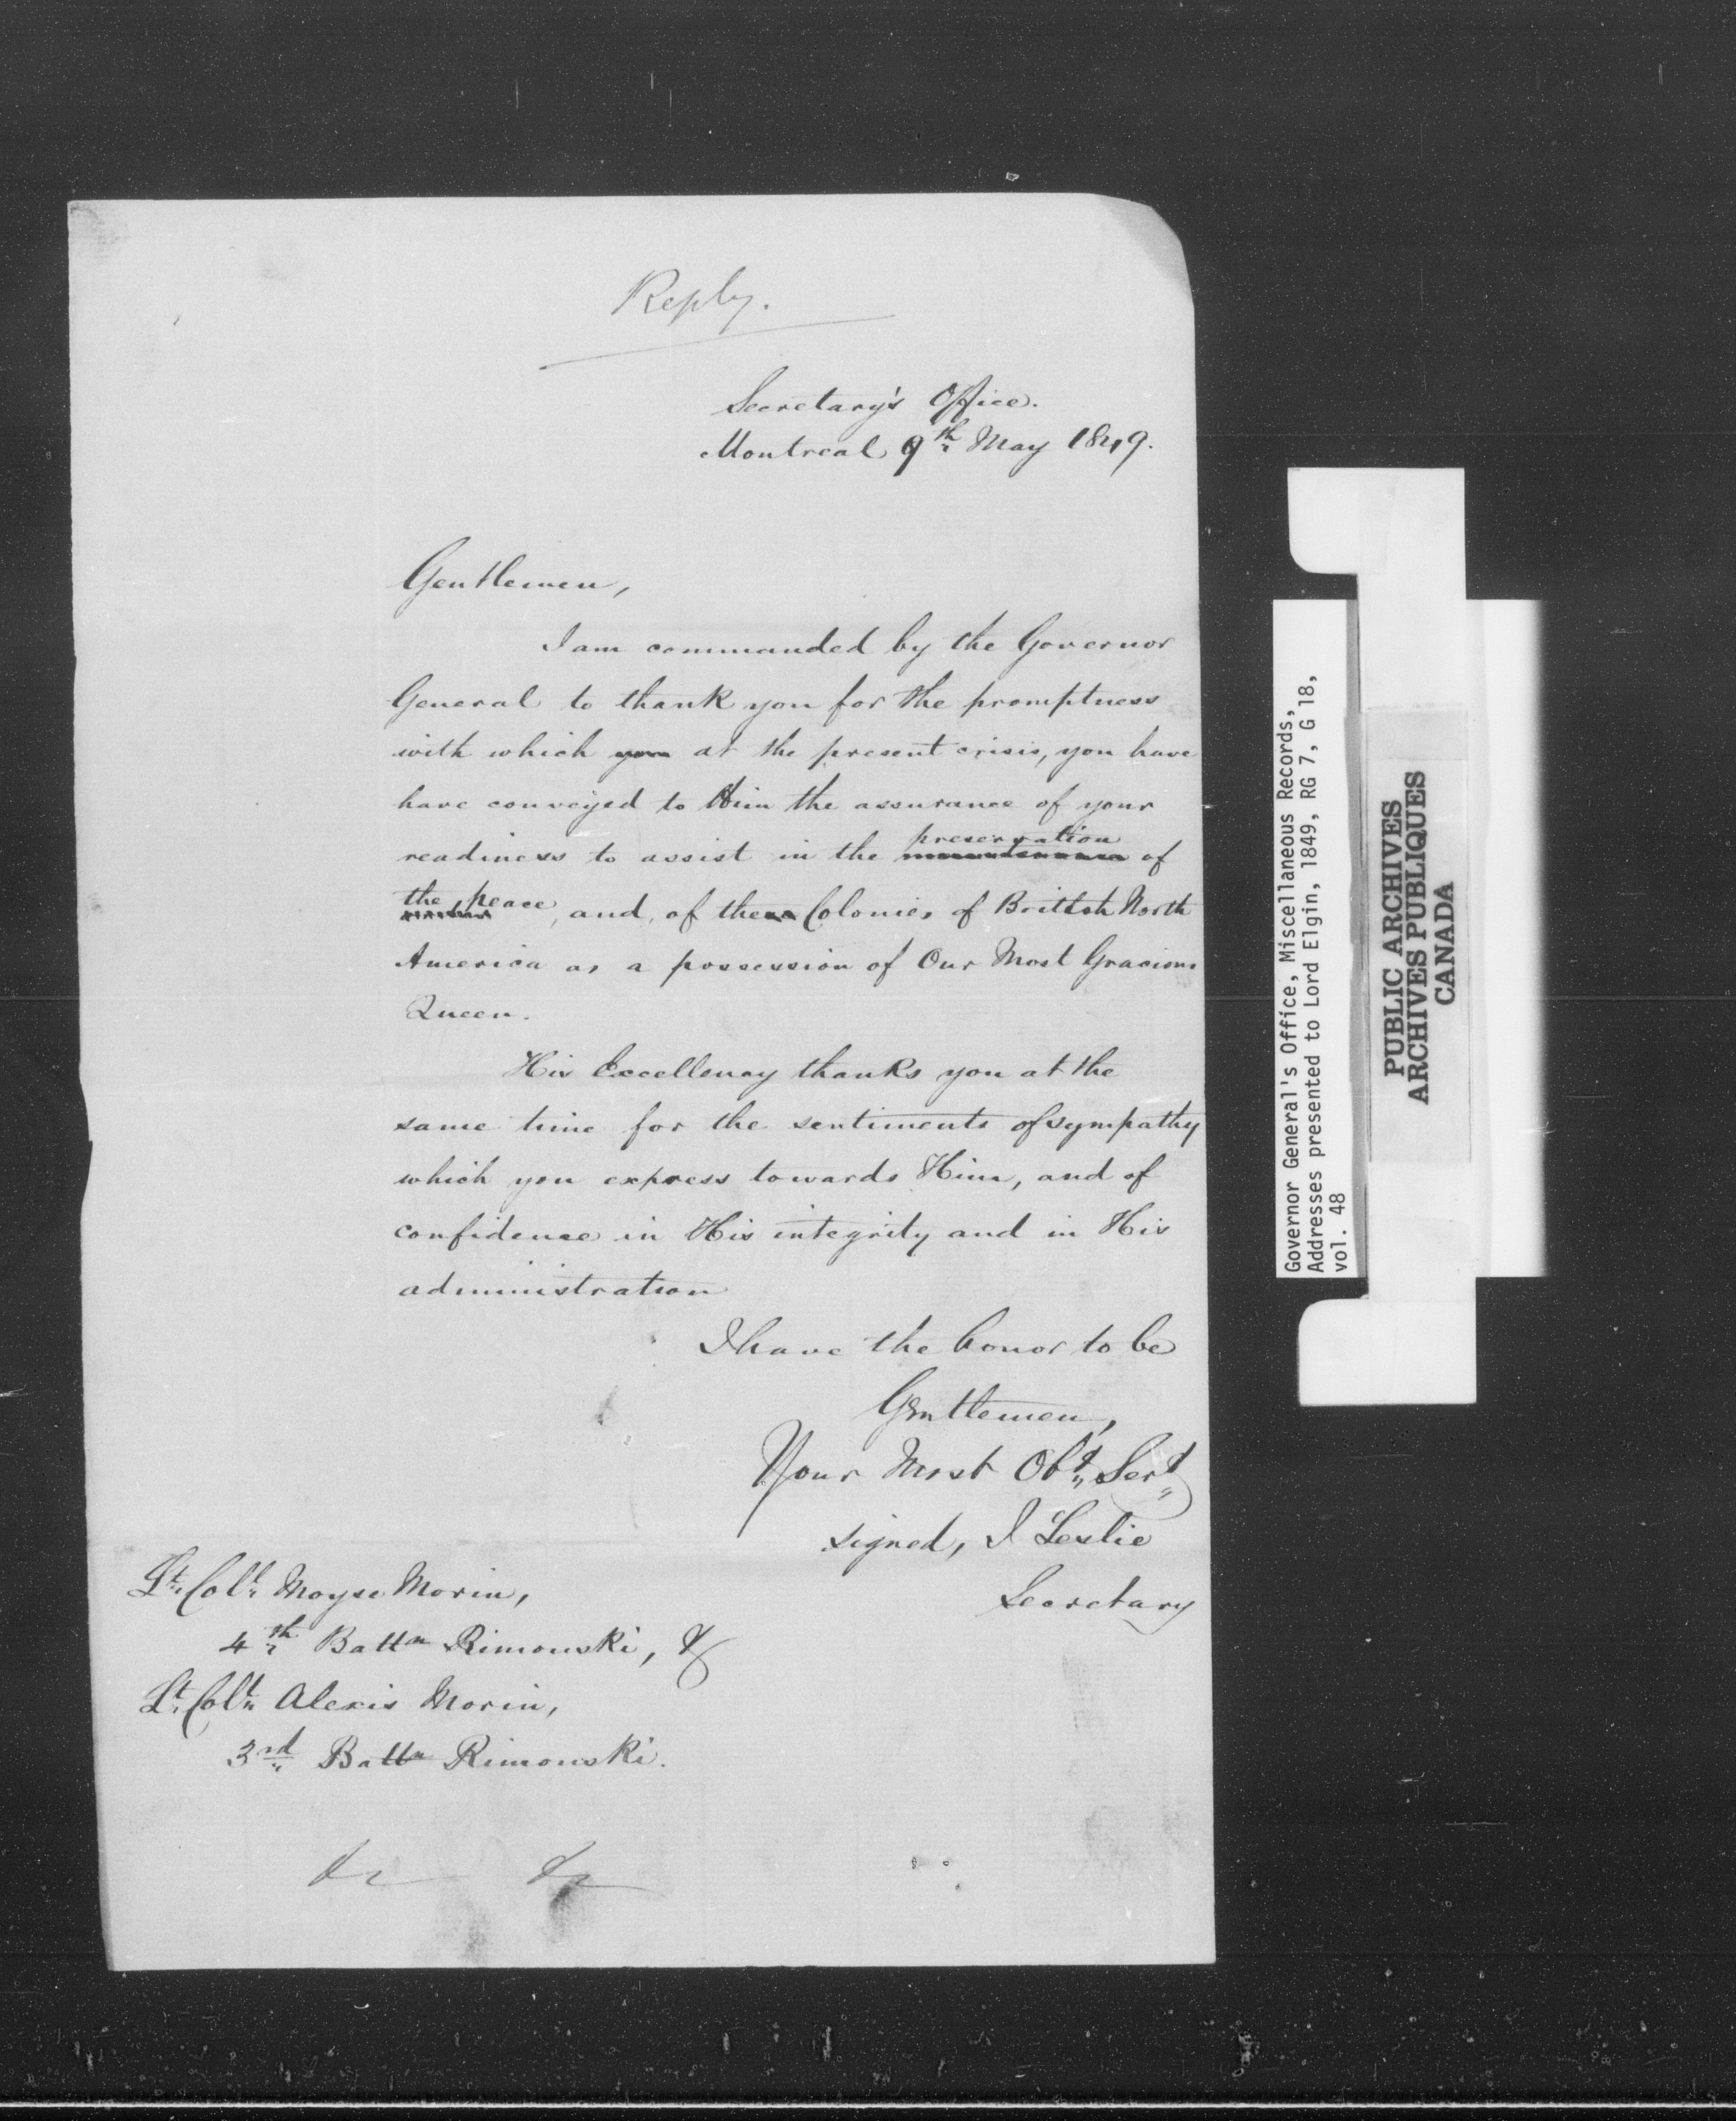 Reply.
Secretary's Office.
Montreal 9th May 1849.
Gentlemen,
I am commanded by the Governor
General to thank you for the promptness
with which you at the present crisis, you have
have conveyed to Him the assurance of your
preservation
readiness to assist in the maintenance of
the peace, and, of these Colonies of British North
America as a possession of Our Most Gracious
Queen.
His Excellency thanks you at the
same time for the sentiments of sympathy
which you express towards Him, and of
confidence in His integrity and in His
administration
I have the honor to be
Gentlemen,
Your Most Obt Sert
signed, J Leslie
Secretary
Lt Coll Moyse Morin,
4th Battn Rimouski, &
Lt Coll Alexis Morin,
3rd Battn Rimouski.
&c &c
Governor General's Office, Miscellaneous Records,
Addresses presented to Lord Elgin, 1849, RG 7, G 18,
vol. 48
PUBLIC ARCHIVES
ARCHIVES PUBLIQUES
CANADA